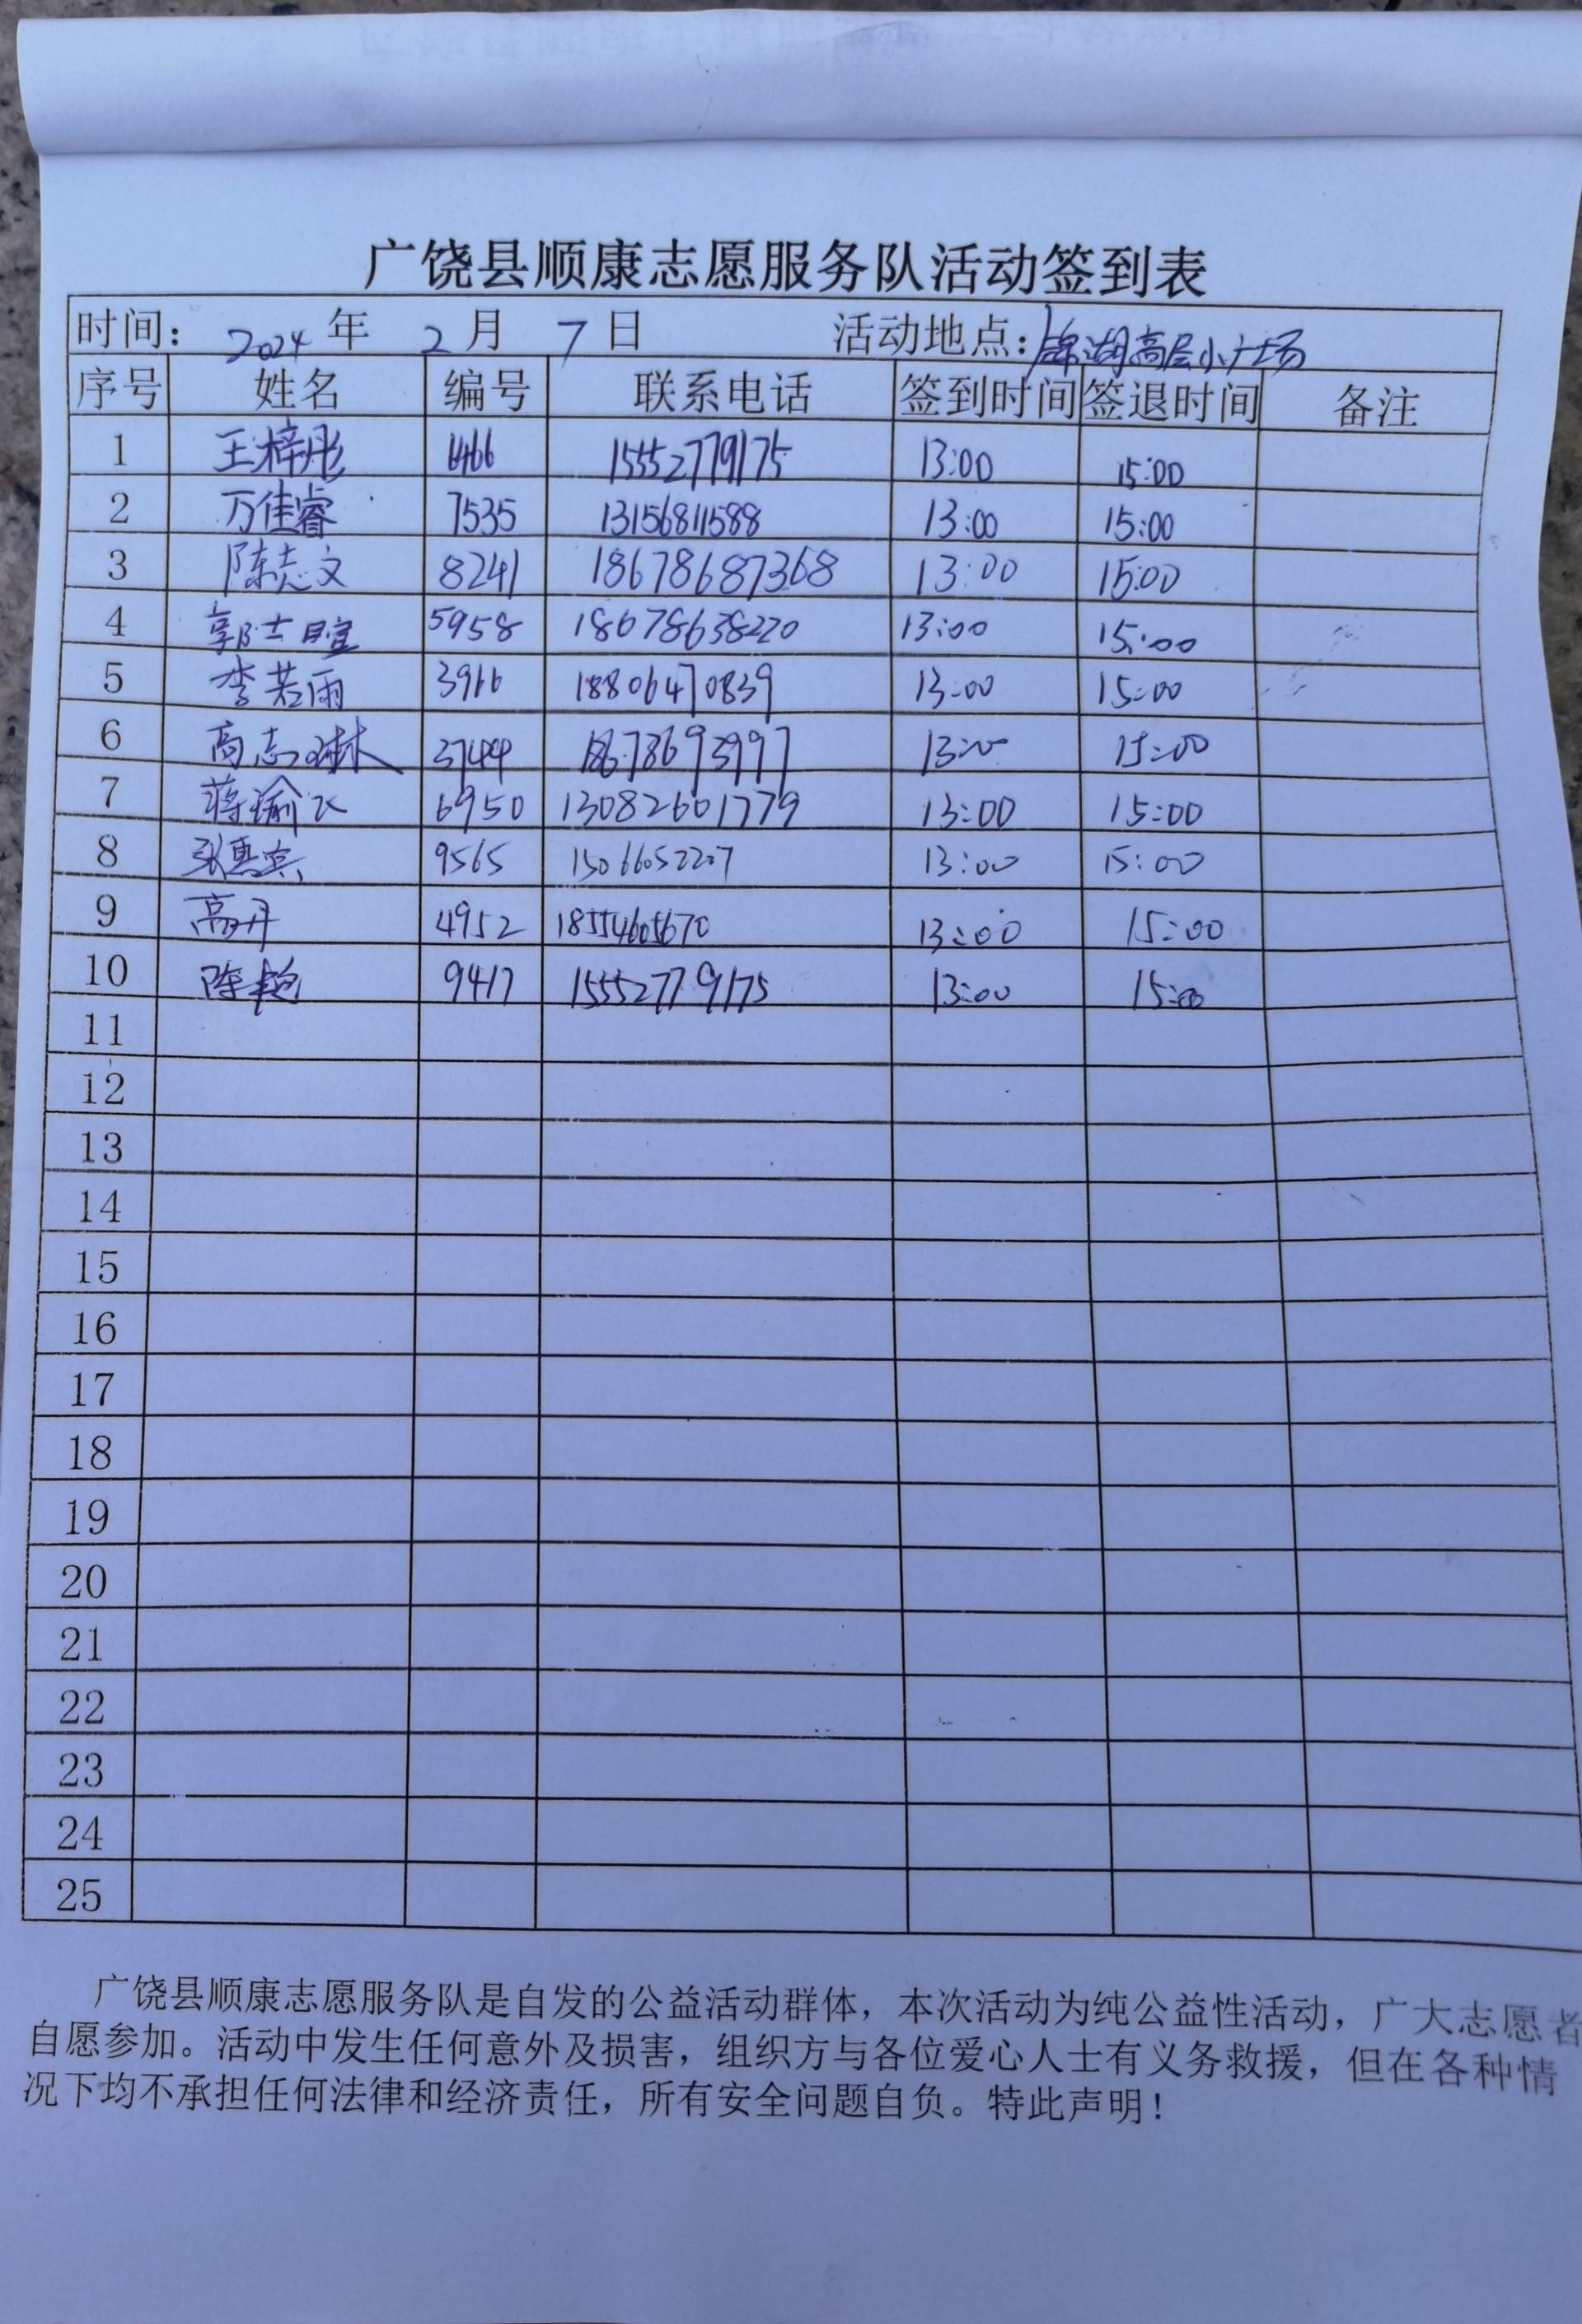 广饶县顺康志愿服务队活动签到表
时间： 2024 年 2 月 7 日 活动地点：锦湖高层小广场
序号 姓名 编号 联系电话 签到时间 签退时间 备注
1 王梓彤 6466 15552779175 13:00 15:00
2 万佳睿 7535 13156811588 13:00 15:00
3 陈志文 8241 18678687368 13:00 15:00
4 郭士暄 5958 18678638220 13:00 15:00
5 李若雨 3966 18806470839 13:00 15:00
6 高志琳 3744 18678693997 13:00 15:00
7 蒋瑜 6950 13082601779 13:00 15:00
8 张惠宾 9565 15066052207 13:00 15:00
9 高丹 4952 18554605670 13:00 15:00
10 陈艳 9417 15552779175 13:00 15:00
11
12
13
14
15
16
17
18
19
20
21
22
23
24
25
广饶县顺康志愿服务队是自发的公益活动群体，本次活动为纯公益性活动，广大志愿者
自愿参加。活动中发生任何意外及损害，组织方与各位爱心人士有义务救援，但在各种情
况下均不承担任何法律和经济责任，所有安全问题自负。特此声明！